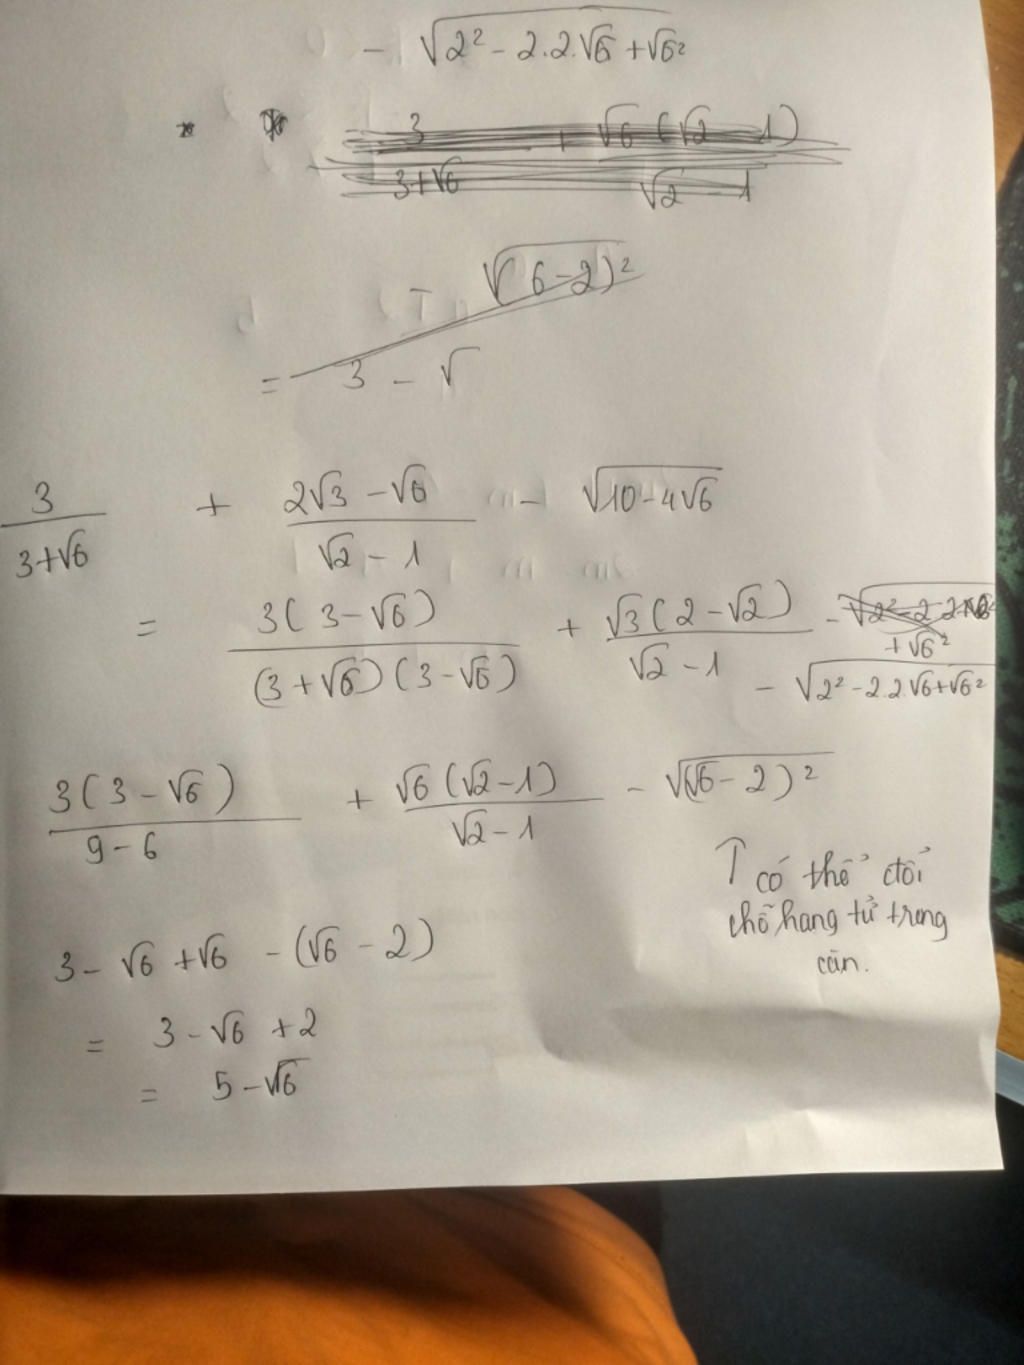 - √(2² - 2.2.√6 + √6²)
3/(3+√6) + √6(√2 - 1)/(√2 - 1)
√(6-2)²
= 3 - √
3/(3+√6) + (2√3 - √6)/(√2 - 1) - √(10 - 4√6)
= 3(3 - √6)/((3 + √6)(3 - √6)) + √3(2 - √2)/(√2 - 1) - √(2² - 2.2√6 + √6²)
- √(2² - 2.2√6 + √6²)
3(3 - √6)/(9 - 6) + √6(√2 - 1)/(√2 - 1) - √((√6 - 2)²)
↑ có thể đổi
chỗ hạng tử trong
căn.
3 - √6 + √6 - (√6 - 2)
= 3 - √6 + 2
= 5 - √6